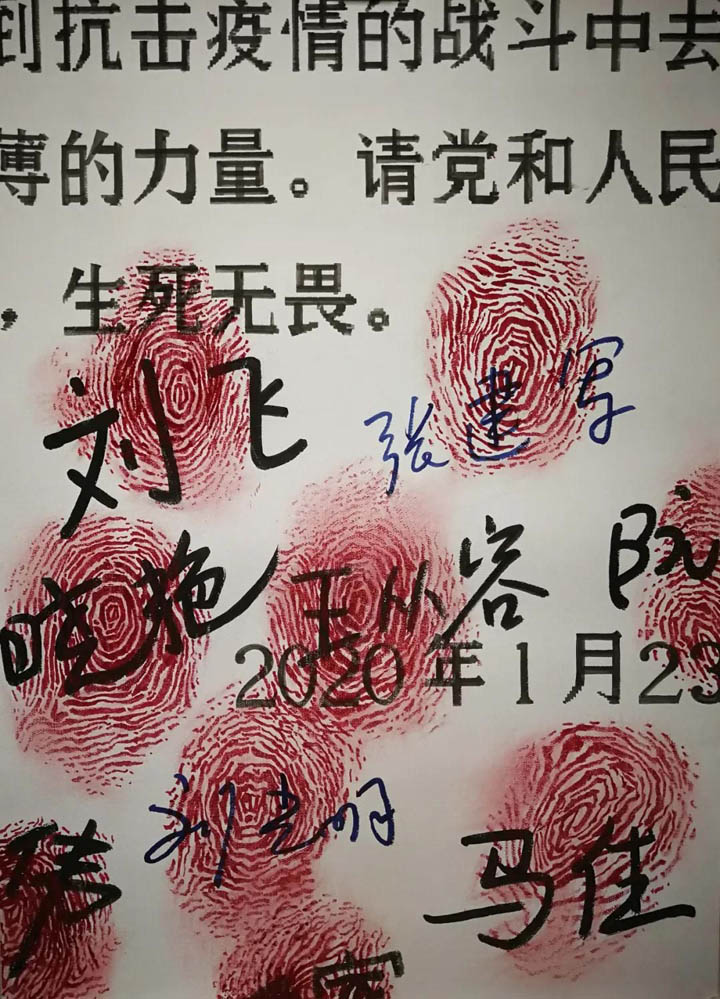 到抗击疫情的战斗中去
薄的力量。请党和人民
，生死无畏。
刘飞
张建军
晓艳 王从容 阮
2020年1月23
刘光明
马佳